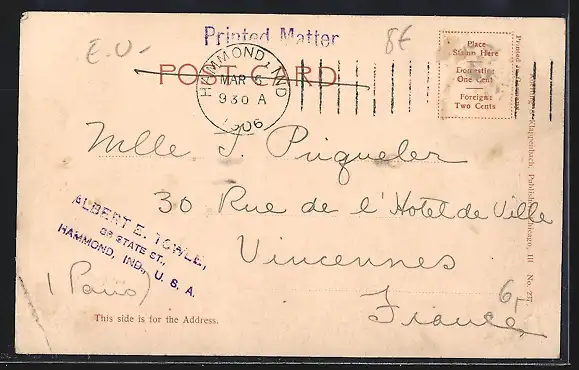 E.U-
Printed Matter
8€
POST CARD
HAMMOND, IND
MAR 6
9 30 A
1906
Place
Stamp Here
Domestic
One Cent
Foreign
Two Cents
Mlle J. Puqueler
30 Rue de l'Hotel de Ville
Vincennes
(Paris)
France
6,-
ALBERT E. TOWLE,
STATE ST.,
HAMMOND, IND., U. S. A.
This side is for the Address.
Printed in Germany
& Klappenbach, Publishers, Chicago, Ill No. 277.